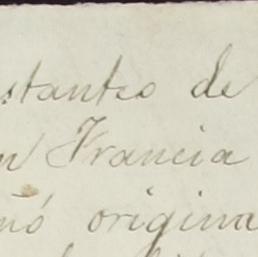 stantes de
n Francia
nó origina